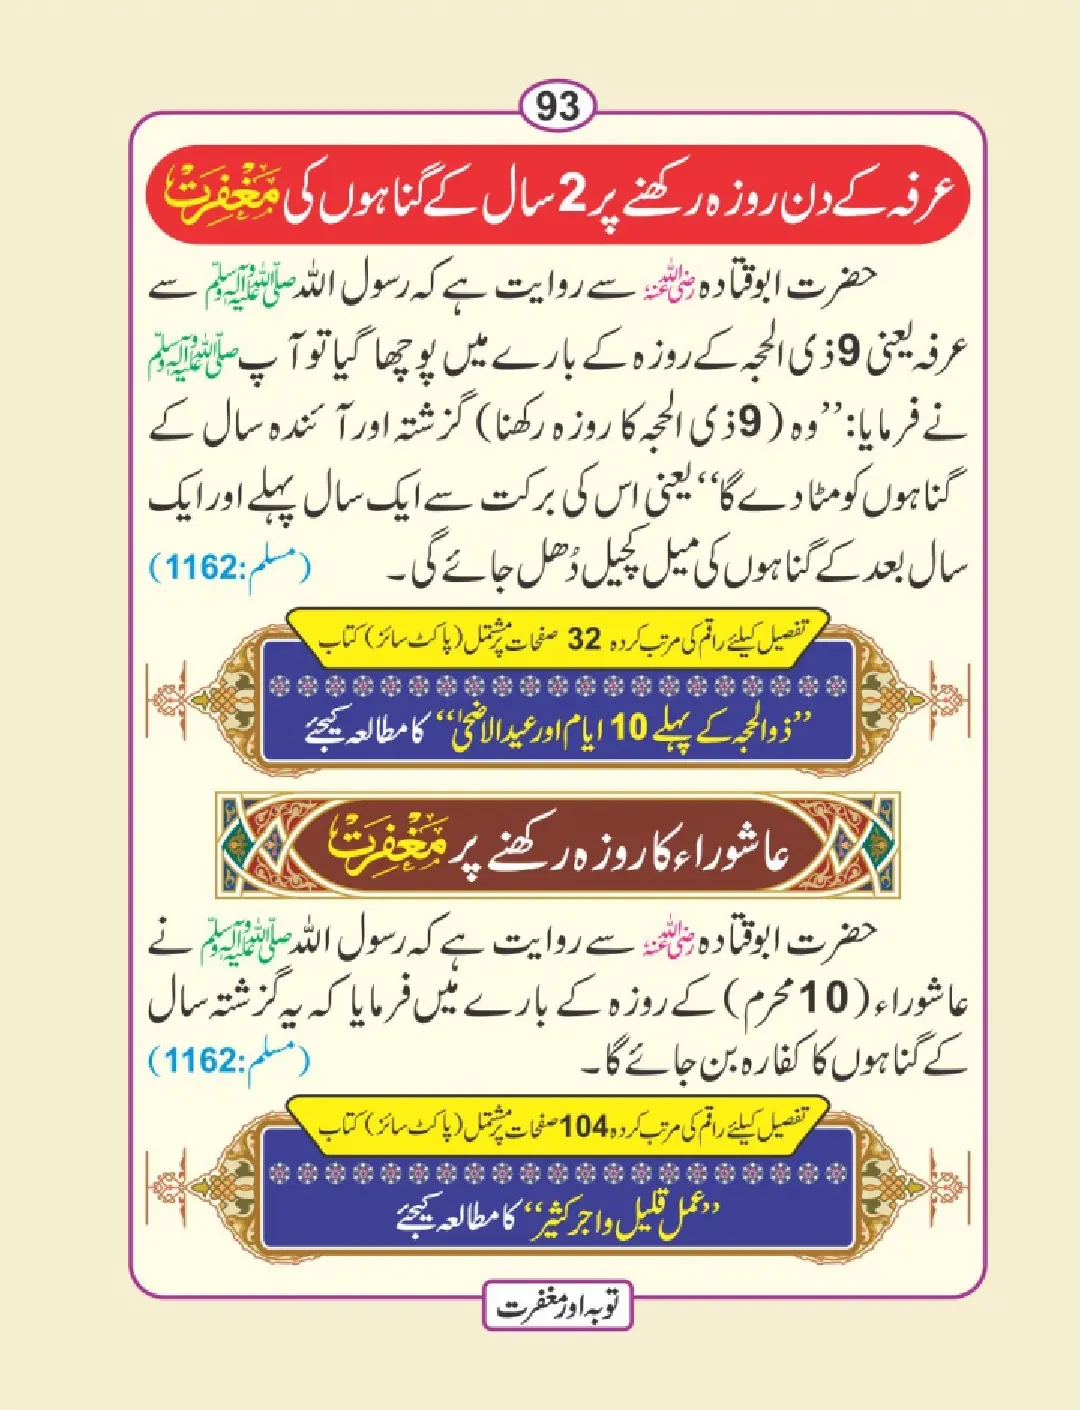 93
عرفہ کے دن روزہ رکھنے پر 2 سال کے گناہوں کی مغفرت
حضرت ابوقتادہ رضی اللہ عنہ سے روایت ہے کہ رسول اللہ صلی اللہ علیہ وآلہ وسلم سے
عرفہ یعنی 9 ذی الحجہ کے روزہ کے بارے میں پوچھا گیا تو آپ صلی اللہ علیہ وآلہ وسلم
نے فرمایا: ’’وہ (9 ذی الحجہ کا روزہ رکھنا) گزشتہ اور آئندہ سال کے
گناہوں کو مٹا دے گا‘‘ یعنی اس کی برکت سے ایک سال پہلے اور ایک
سال بعد کے گناہوں کی میل کچیل دُھل جائے گی۔ (مسلم:1162)
تفصیل کیلئے راقم کی مرتب کردہ 32 صفحات پر مشتمل (پاکٹ سائز) کتاب
’’ذوالحجہ کے پہلے 10 ایام اور عیدالاضحیٰ‘‘ کا مطالعہ کیجئے
عاشوراء کا روزہ رکھنے پر مَغْفِرَت
حضرت ابوقتادہ رضی اللہ عنہ سے روایت ہے کہ رسول اللہ صلی اللہ علیہ وآلہ وسلم نے
عاشوراء (10 محرم) کے روزہ کے بارے میں فرمایا کہ یہ گزشتہ سال
کے گناہوں کا کفارہ بن جائے گا۔ (مسلم:1162)
تفصیل کیلئے راقم کی مرتب کردہ 104 صفحات پر مشتمل (پاکٹ سائز) کتاب
’’عمل قلیل و اجر کثیر‘‘ کا مطالعہ کیجئے
توبہ اور مغفرت